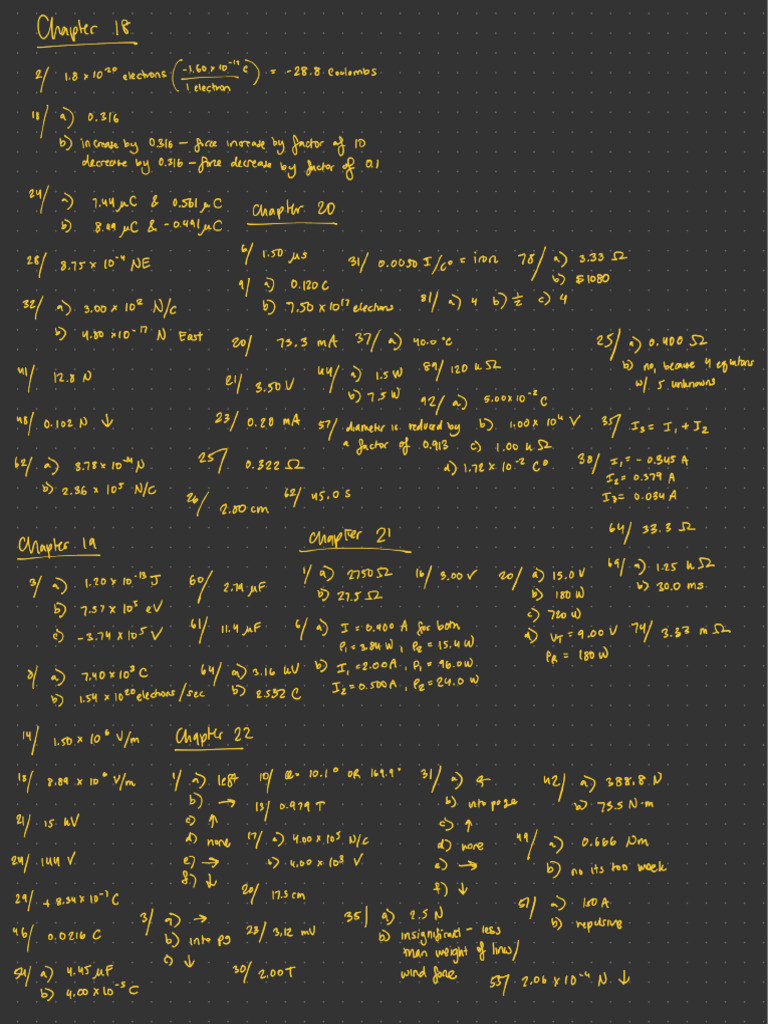 Chapter 18
2/ 1.8 x 10^20 electrons (-1.60 x 10^-19 C / 1 electron) = -28.8 Coulombs
18/ a) 0.316
b) increase by 0.316 – force increase by factor of 10
decrease by 0.316 – force decrease by factor of 0.1
24/ a) 7.44 μC & 0.561 μC
b) 8.99 μC & -0.491 μC
28/ 8.75 x 10^-4 NE
32/ a) 3.00 x 10^2 N/C
b) 4.80 x 10^-17 N East
41/ 12.8 N
48/ 0.102 N ↓
62/ a) 3.78 x 10^-4 N
b) 2.36 x 10^5 N/C
Chapter 19
3/ a) 1.20 x 10^-13 J
b) 7.57 x 10^5 eV
c) -3.74 x 10^5 V
8/ a) 7.40 x 10^3 C
b) 1.54 x 10^20 electrons/sec
14/ 1.50 x 10^6 V/m
18/ 8.89 x 10^6 V/m
21/ 15 kV
24/ 144 V
29/ + 8.34 x 10^-7 C
46/ 0.0216 C
54/ a) 4.45 μF
b) 4.00 x 10^-5 C
60/ 2.79 μF
61/ 11.4 μF
64/ a) 3.16 kV
b) 2.532 C
Chapter 20
6/ 1.50 μs
9/ a) 0.120 C
b) 7.50 x 10^17 electrons
20/ 73.3 mA
21/ 3.50 V
23/ 0.20 mA
25/ 0.322 Ω
26/ 2.80 cm
31/ 0.0050 I/C° = iron
37/ a) 40.0 °C
44/ a) 1.5 W
b) 7.5 W
57/ diameter is reduced by
a factor of 0.913
62/ 45.0 s
78/ a) 3.33 Ω
b) $1080
81/ a) 4 b) 1/2 c) 4
89/ 120 kΩ
92/ a) 5.00 x 10^-2 C
b) 1.00 x 10^4 V
c) 1.00 kΩ
d) 1.72 x 10^-2 C°
Chapter 21
1/ a) 2750 Ω
b) 27.5 Ω
6/ a) I = 0.400 A for both
P1 = 3.84 W, P2 = 15.4 W
b) I1 = 2.00 A, P1 = 96.0 W
I2 = 0.500 A, P2 = 24.0 W
16/ 3.00 V
20/ a) 15.0 V
b) 180 W
c) 720 W
d) VT = 9.00 V
PR = 180 W
25/ a) 0.400 Ω
b) no, because 4 equations
w/ 5 unknowns
35/ I3 = I1 + I2
38/ I1 = -0.345 A
I2 = 0.379 A
I3 = 0.034 A
64/ 33.3 Ω
69/ a) 1.25 kΩ
b) 30.0 ms
74/ 3.33 mΩ
Chapter 22
1/ a) left
b) →
c) ↑
d) none
e) →
f) ↓
3/ a) →
b) into pg
c) ↓
10/ θ = 10.1° OR 169.9°
13/ 0.979 T
17/ a) 4.00 x 10^3 N/C
b) 4.00 x 10^3 V
20/ 17.3 cm
28/ 3.12 mV
30/ 2.00 T
31/ a) ←
b) into page
c) ↑
d) none
e) →
f) ↓
35/ a) 2.5 N
b) insignificant – less
than weight of lines/
wind force
42/ a) 388.8 N
b) 73.5 N·m
49/ a) 0.666 Nm
b) no its too weak
51/ a) 100 A
b) repulsive
55/ 2.06 x 10^-4 N ↓